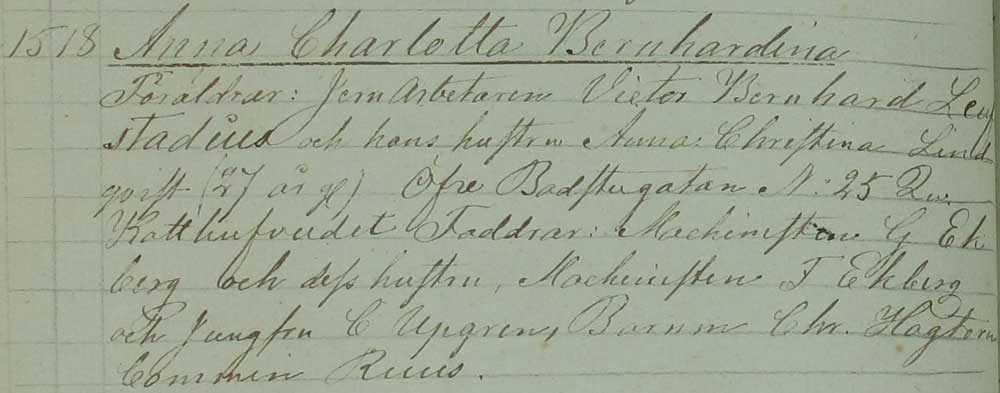 15 18 Anna Charlotta Bernhardina
Föräldrar: Jern Arbetaren Victor Bernhard Leu
stadius och hans hustru Anna Christina Lind
qvist (27 år g) Öfre Badstugatan N: 25 Qu.
Katthufvudet Faddrar: Machinisten G Ek
berg och dess hustru, Machinisten F Ekberg
och Jungfru C Upgren, Barnm Chr. Hagtorn
Commin Ruus.